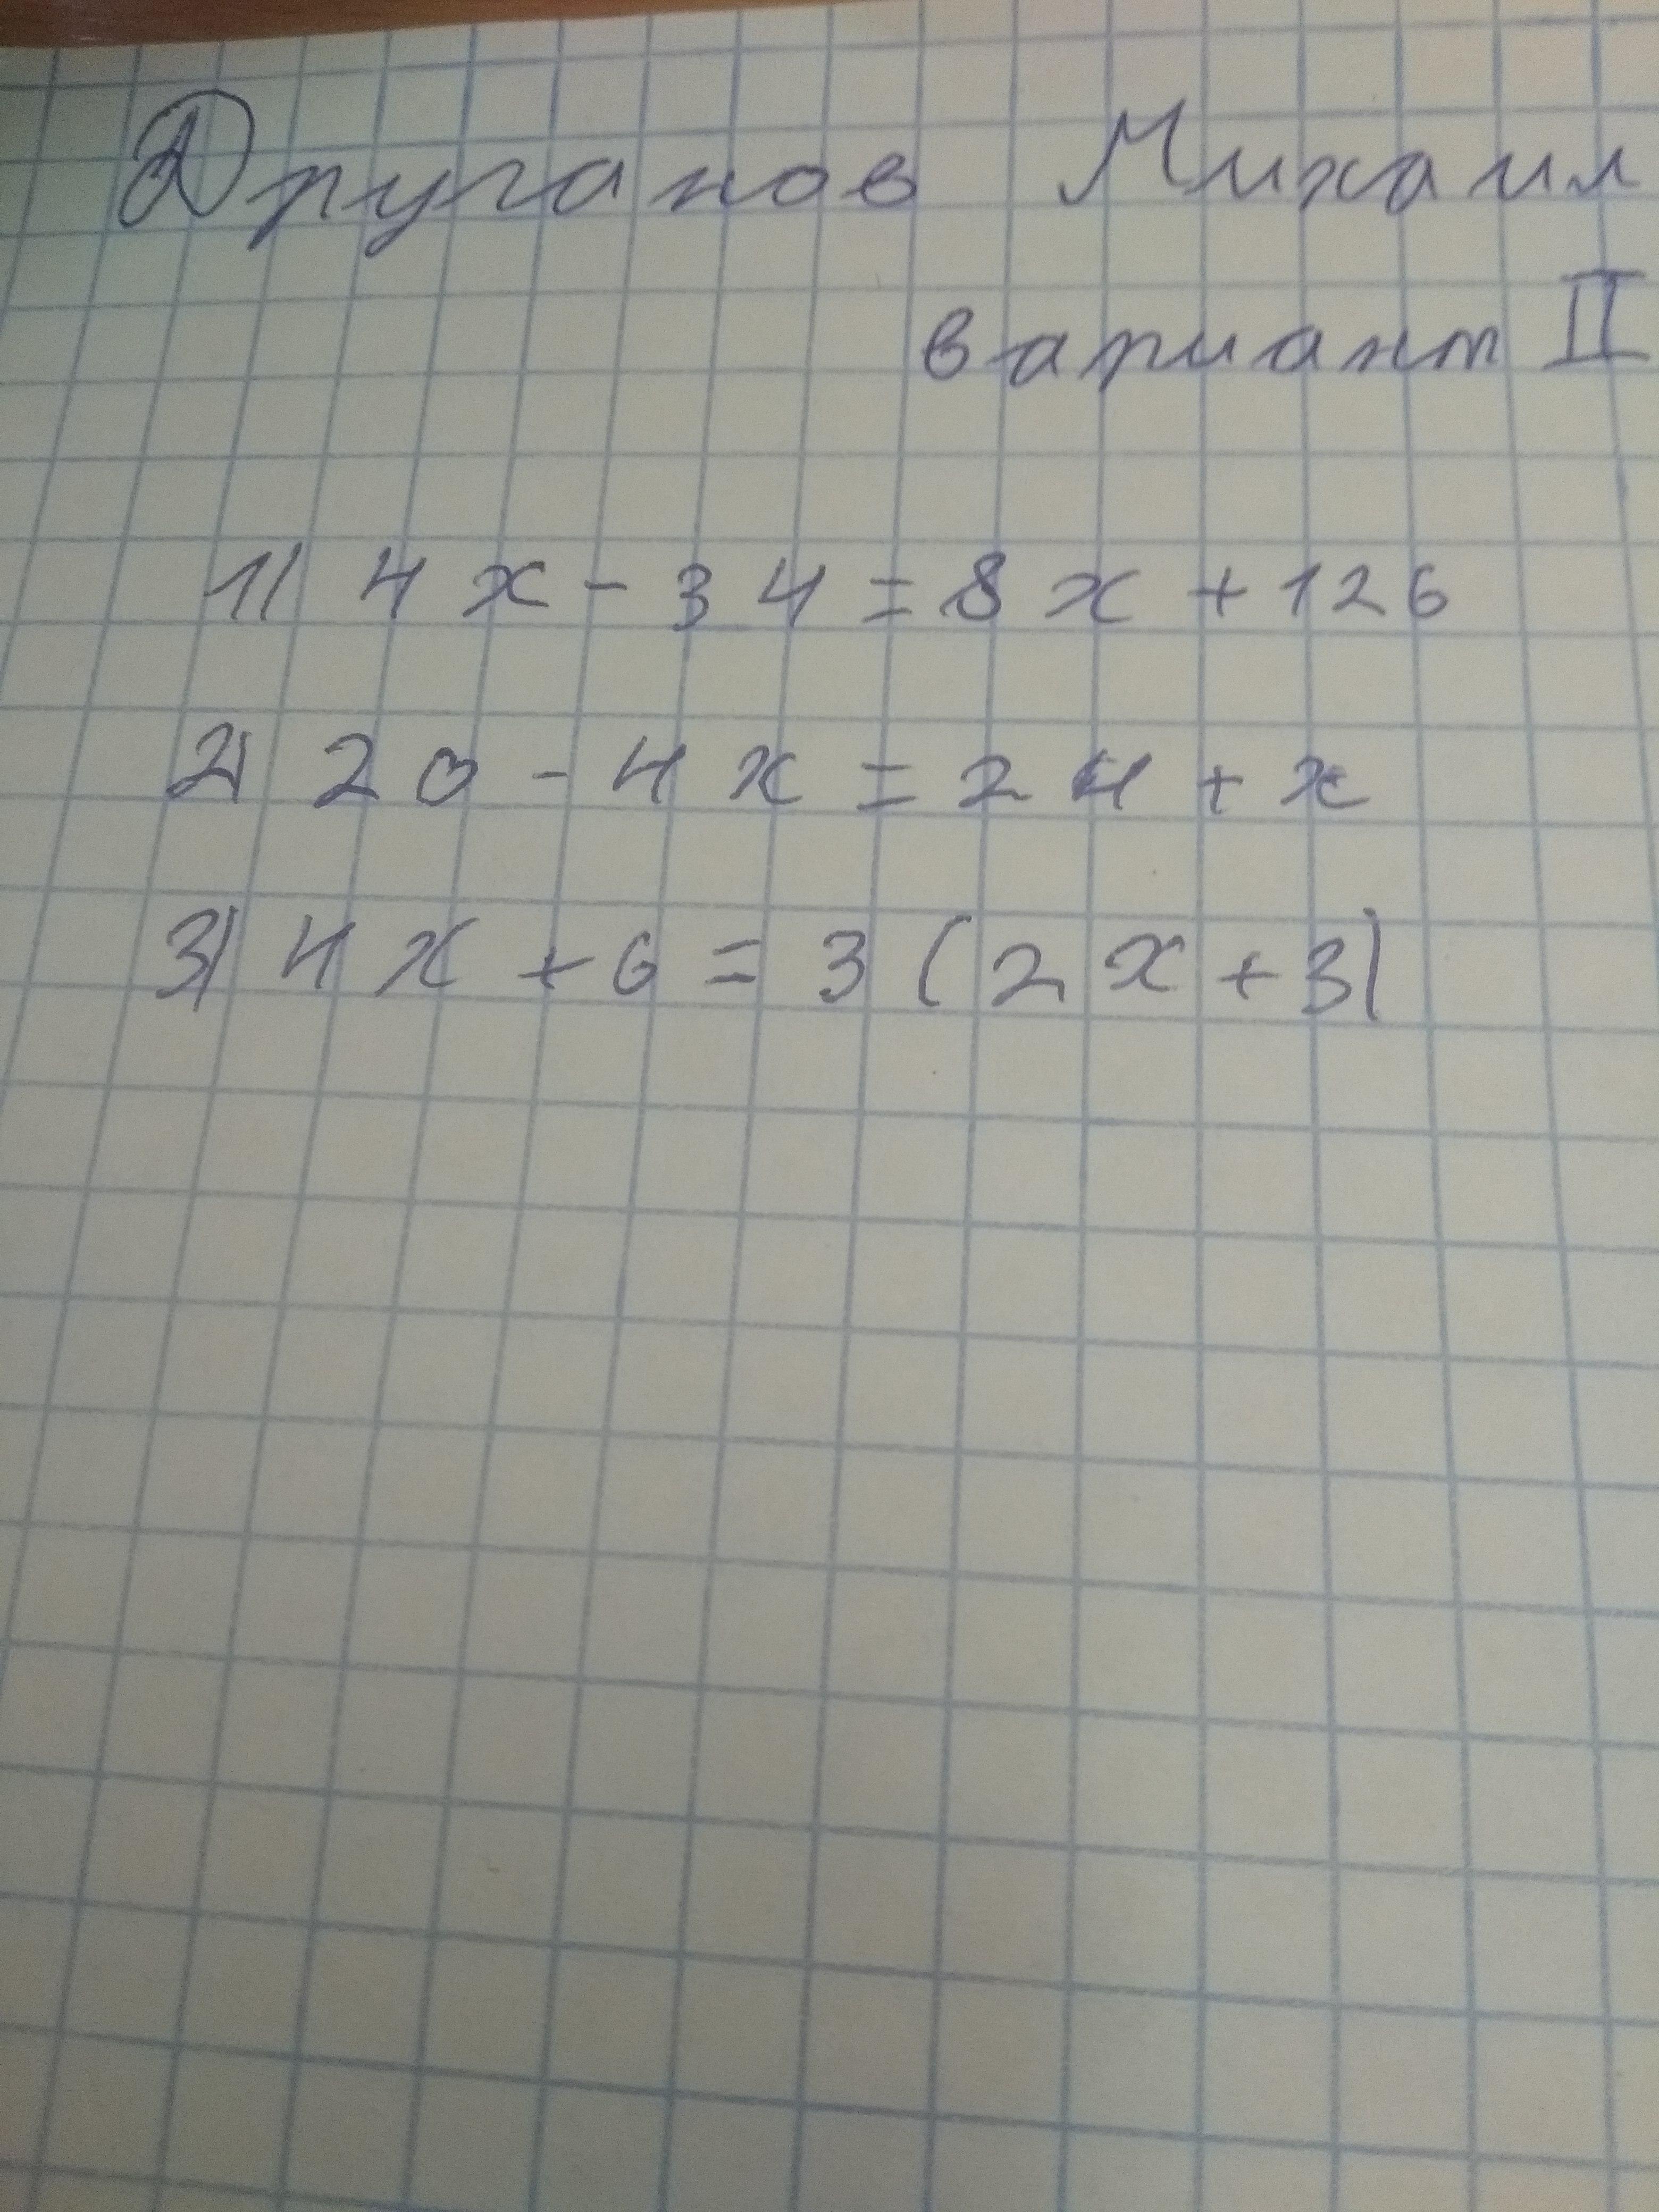 Друганов Михаил
вариант II
1) 4x - 34 = 8x + 126
2) 20 - 4x = 24 + x
3) 4x + 6 = 3 (2x + 3)